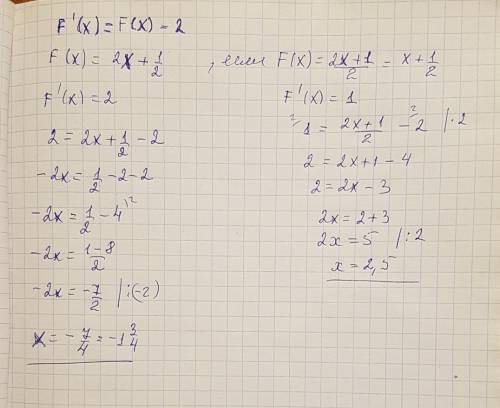 F'(x) = F(x) - 2
F(x) = 2x + 1/2
F'(x) = 2
2 = 2x + 1/2 - 2
-2x = 1/2 - 2 - 2
-2x = 1/2 - 4 )²
-2x = (1-8)/2
-2x = -7/2 |:(-2)
x = -7/4 = -1 3/4
, если F(x) = (2x+1)/2 = x + 1/2
F'(x) = 1
²⁄1 = (2x+1)/2 - ²⁄2 |·2
2 = 2x + 1 - 4
2 = 2x - 3
2x = 2 + 3
2x = 5 |:2
x = 2,5